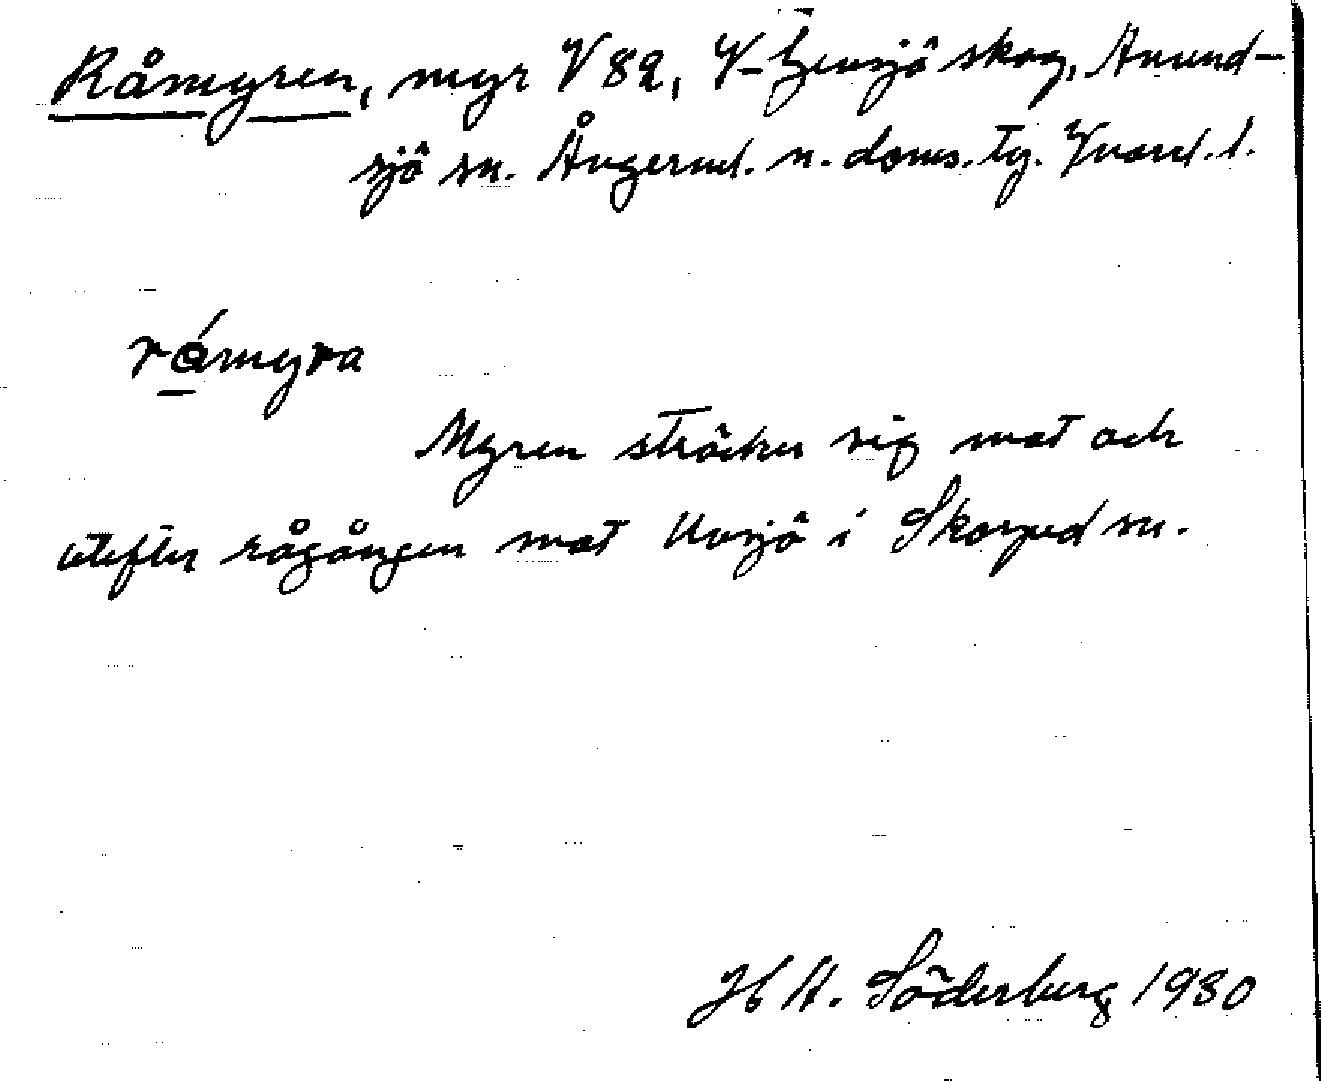 Råmyren, myr V 82, V-Gensjö skog, Anund-
sjö sn. Ångerml. n. doms. tg. Yvard. l.
råmyra
Myren sträcker sig mot och
utefter rågången mot Uvsjö i Skorped sn.
H A. Söderberg 1930